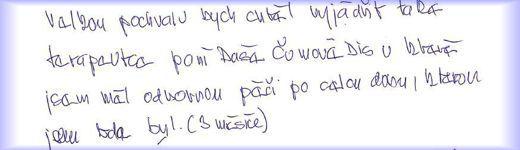 Velkou pochvalu bych chtěl vyjádřit také
terapeutce paní Daše Čumové Dis u které
jsem měl odbornou péči po celou dobu, kterou
jsem zde byl. (3 měsíce)